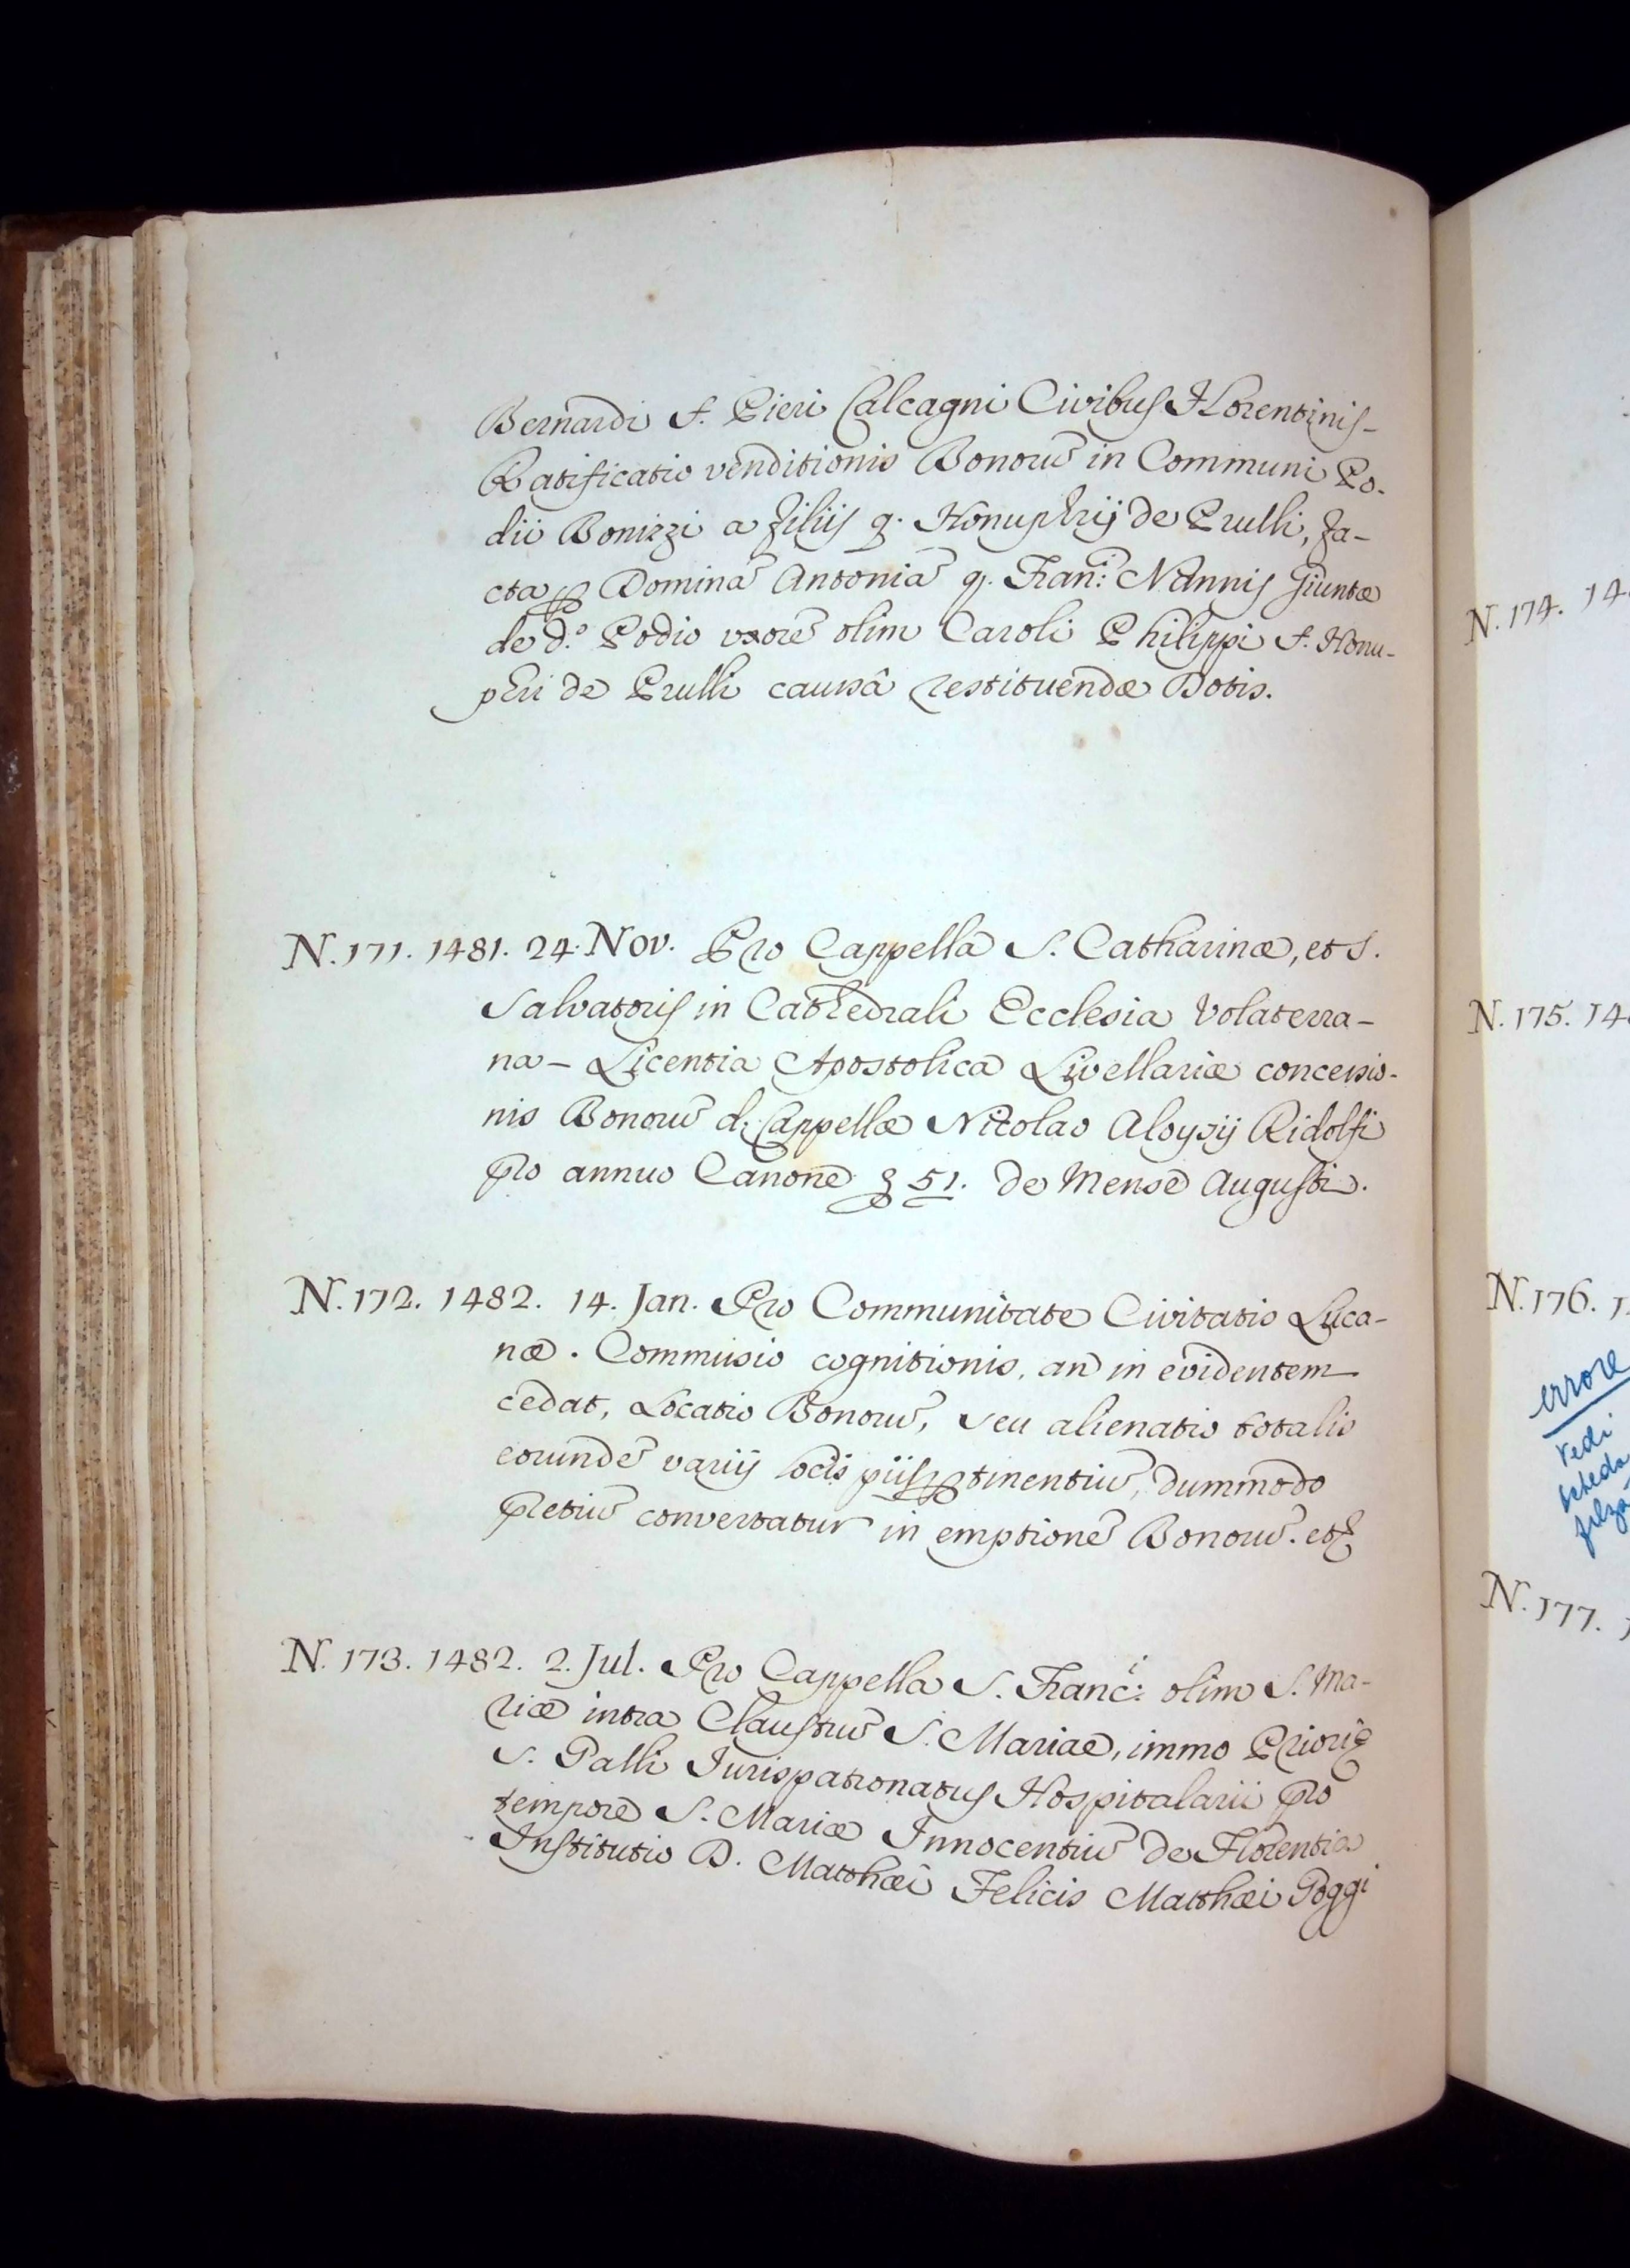 Bernardi f. Pieri Calcagni Civibus Florentinis-
Ratificatio venditionis Bonorũ in Communi Po-
dii Bonizzi a Filiis q. Honuphrij de Prulli, Fa-
cta ꝑ Dominã Antoniã q. Franc:i Nannis Giuntæ
de d.o Podio uxorẽ olim Caroli Philippi f. Honu-
phri de Prulli caussâ restituendæ Dotis.
N. 171. 1481. 24. Nov. Pro Cappella S. Catharinæ, et S.
Salvatoris in Cathedrali Ecclesia Volaterra-
na - Licentia Apostolica Livellariæ concessio-
nis Bonorũ d: Cappellæ Nicolao Aloysij Ridolfi
pro annuo Canone 51. de Mense Augusti.
N. 172. 1482. 14. Jan. Pro Communitate Civitatis Luca-
næ. Commissio cognitionis, an in evidentem
cedat, Locatio Bonorũ, seu alienatio totalis
eorundẽ variis locis piis ꝑtinentiũ, dummodo
pretiũ convertatur in emptionẽ Bonorũ. etc
N. 173. 1482. 2. Jul. Pro Cappella S. Franc:i olim S. Ma-
riæ intra Claustrũ S. Mariae, immo Prioris
S. Galli Jurispatronatus Hospitalarii pro
tempore S. Mariæ Innocentiũ de Florentia
Institutio D. Matthæi Felicis Matthæi Poggi
N. 174. 14
N. 175. 14
N. 176. 1
errore
vedi
scheda
filza
N. 177. 1